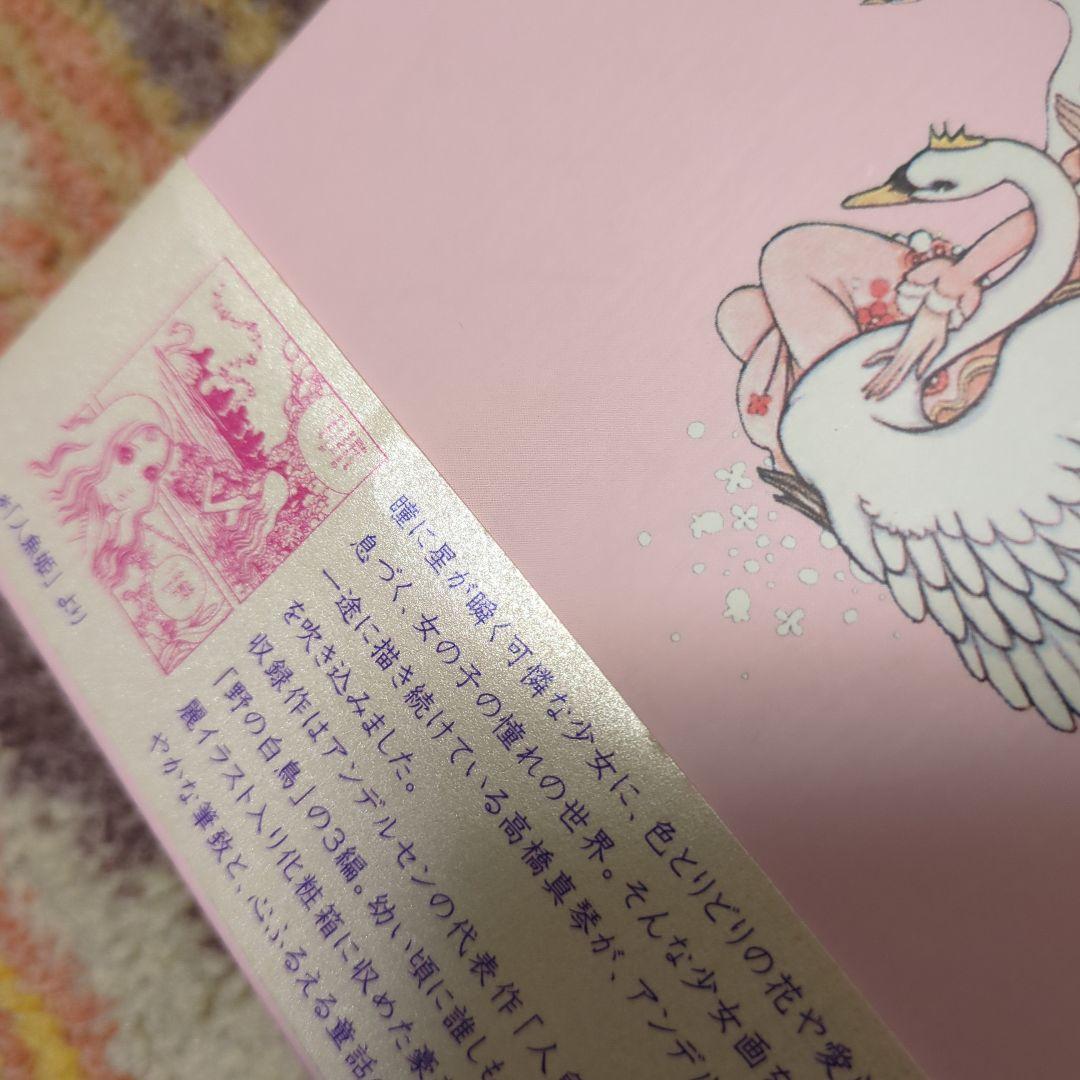 瞳に星が瞬く可憐な少女に、色とりどりの花や愛
息づく、女の子の憧れの世界。そんな少女画
一途に描き続けている高橋真琴が、アンデ
を吹き込みました。
収録作はアンデルセンの代表作「人
「野の白鳥」の3編。幼い頃に誰しも
麗イラスト入り化粧箱に収めた豪
やかな筆致と、心ふるえる童話
「人魚姫」より